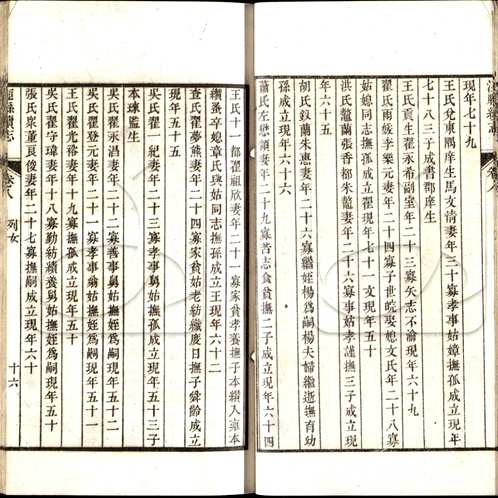 現年七十九
王氏兌東隅庠生馬文情妻年三十寡孝事姑嫜撫孤成立現年
七十八三子成書郡庠生
王氏貢生翟永希副室年二十三寡矢志不渝現年六十九
翟氏雨岐李樂元妻年二十四寡子世皖娶媳文氏年二十八寡
姑媳同志撫孤成立翟現年七十一文現年五十
洪氏鼈蘭張香都朱鼈妻年二十六寡事姑孝謹撫三子成立現
年六十五
胡氏釵蘭朱惠妻年二十六寡繼姪楊爲嗣楊夫婦繼逝撫育幼
孫成立現年六十六
蕭氏左懋額妻年二十九寡苦志食貧撫二子成立現年六十四
王氏十一都翟祖欣妻年二十一寡家貧孝養撫子本績入庠本
績蚤卒媳章氏與姑同志撫孫成立王現年六十二
查氏翟夢熊妻年二十四寡家貧姑老紡織度日撫子舜齡成立
現年五十五
吳氏翟一紀妻年二十三寡孝事舅姑撫孤成立現年五十三子
本球監生
吳氏翟永淐妻年二十一寡善事舅姑撫姪爲嗣現年五十二
吳氏翟登元妻年二十一寡孝事翁姑撫姪爲嗣現年五十一
王氏翟光裕妻年十九寡撫孤成立現年五十
王氏翟守瑋妻年十八寡勤紡績養舅姑撫姪爲嗣現年五十
張氏宗董良俊妻年二十七寡撫嗣成立現年六十
涇縣續志
卷八
列女
十六